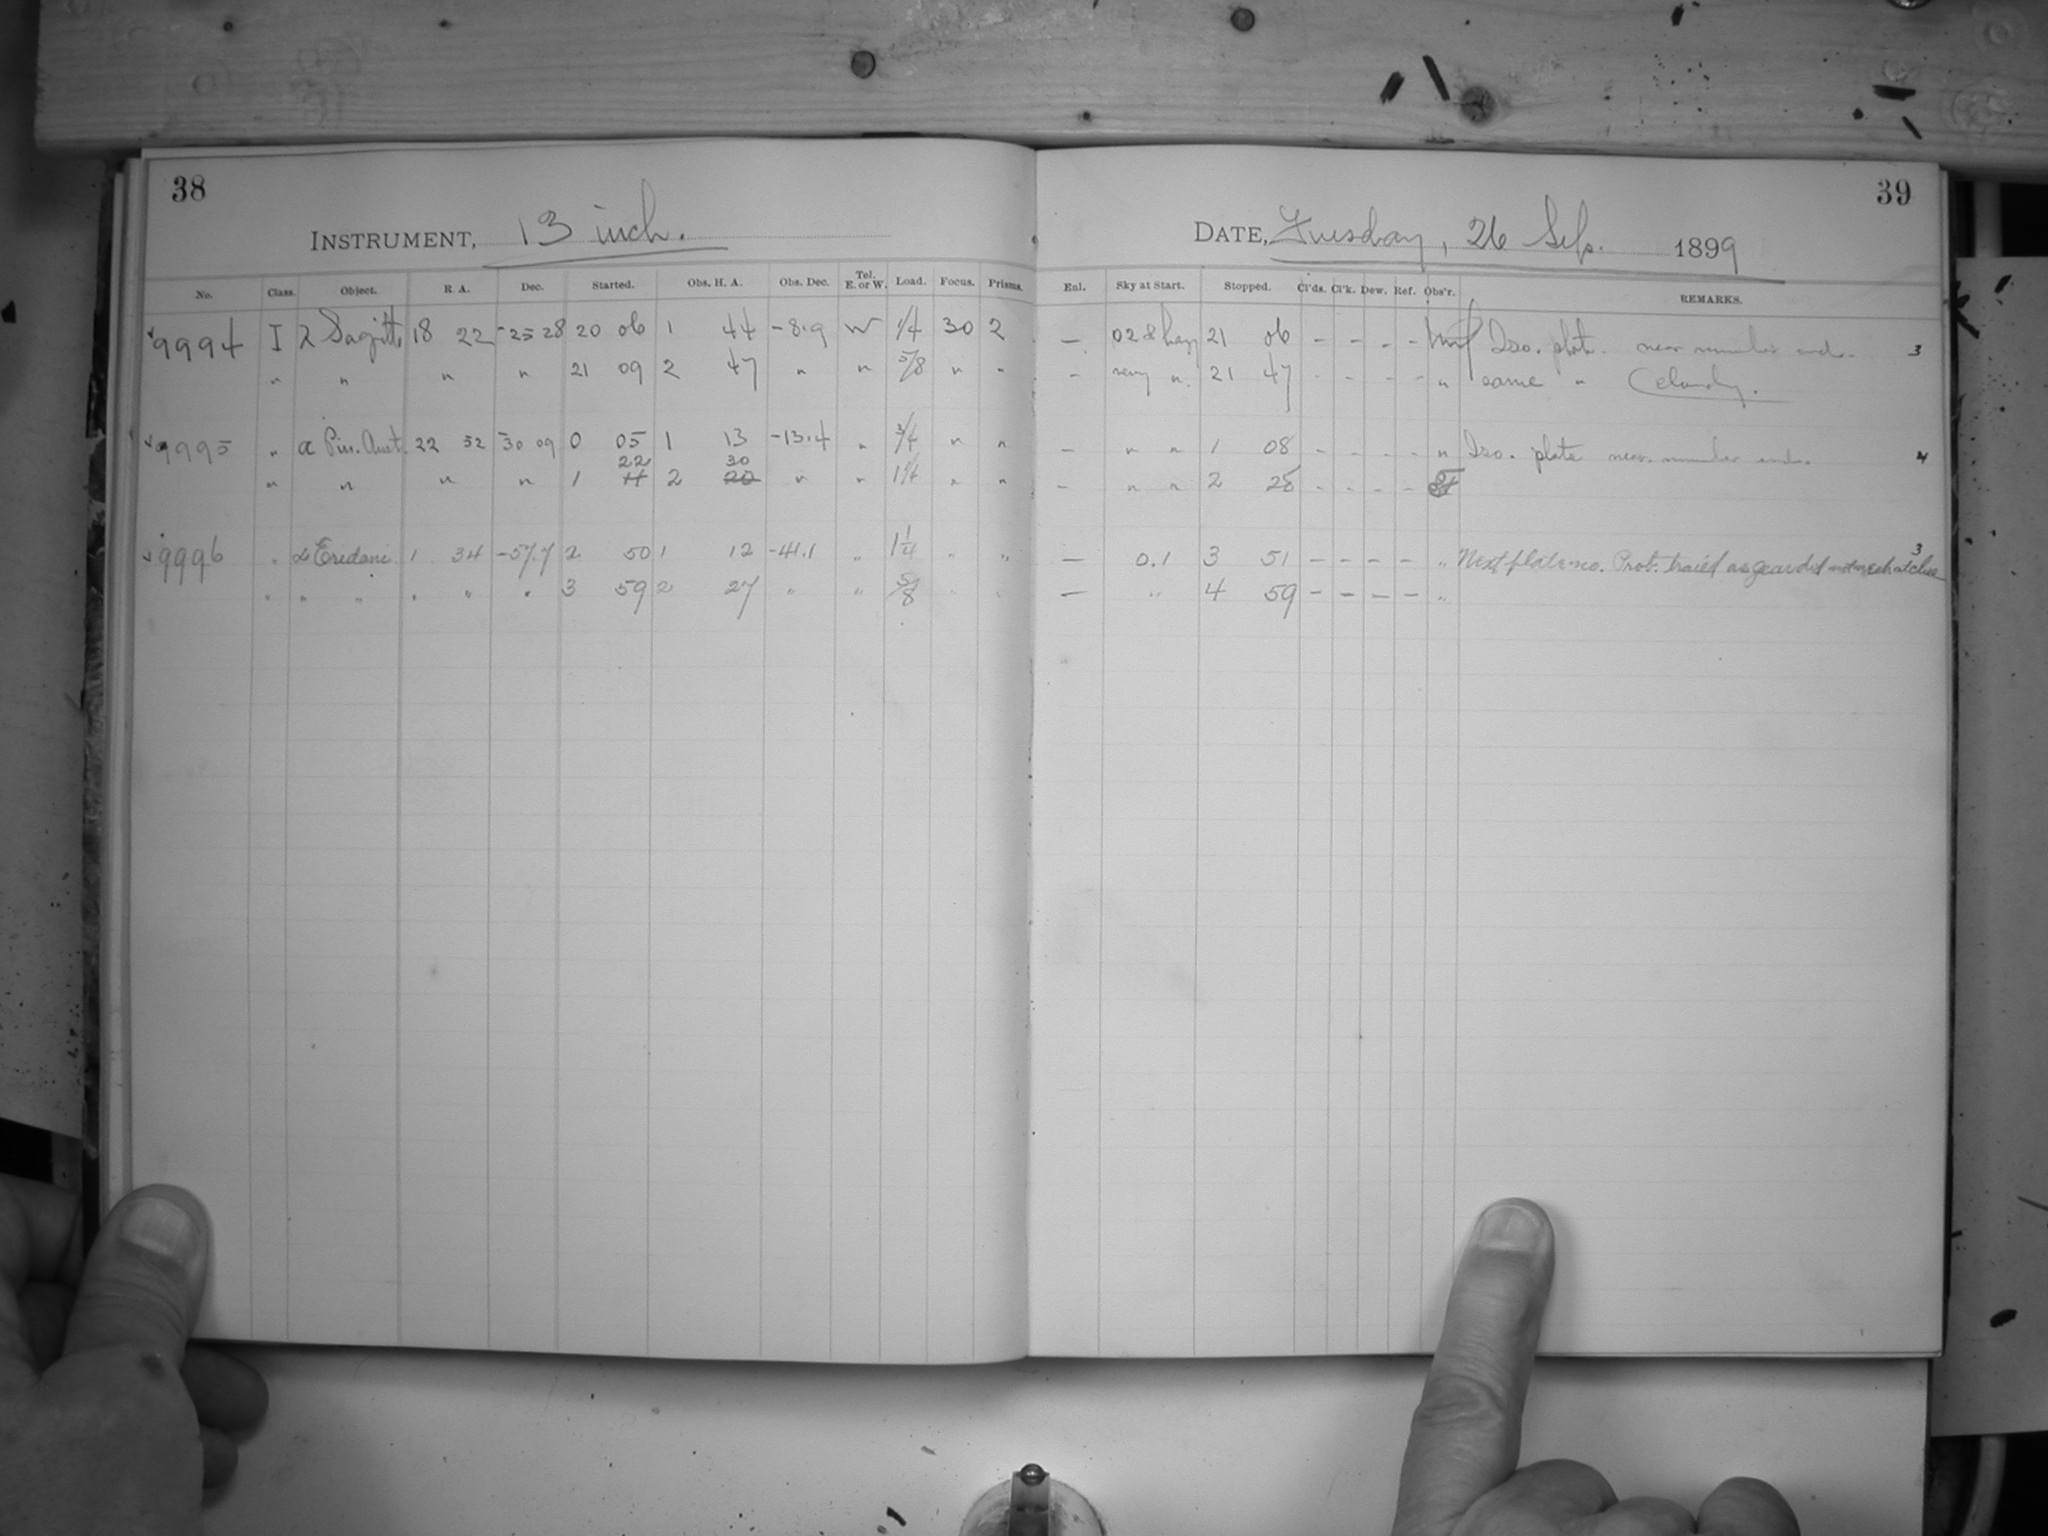 38
INSTRUMENT, 13 inch.
No. Class. Object. R A. Dec. Started. Obs. H. A. Obs. Dec. Tel. E. or W. Load. Focus. Prisms.
9994 I λ Sagitt. 18 22 -25 28 20 06 1 44 -8.9 W 1/4 30 2
" " " " 21 09 2 47 " " 5/8 " "
9995 " α Pis. Aust. 22 52 -30 09 0 05 1 13 -13.4 " 3/4 " "
22 30
" " " " 1 2 20 " " 1/4 " "
9996 " α Eridani 1 34 -57.7 2 50 1 12 -41.1 " 1 1/4 " "
" " " " " " 3 59 2 27 " " 5/8 " "
39
DATE, Tuesday, 26 Sep. 1899
Enl. Sky at Start. Stopped. Cl'ds. Cl'k. Dew. Ref. Obs'r. REMARKS.
— 02 & hazy 21 06 - - - - Iso. plate. near number end. 3
- very ". 21 47 - - - - " same " (Cloudy.
- " " 1 08 - - - - " Iso. plate near number end. 4
- " " 2 28 - - - -
— 0.1 3 51 - - - - " Next plate no. Prob. trailed as gear did not mesh at close 3
— " 4 59 - - - - "